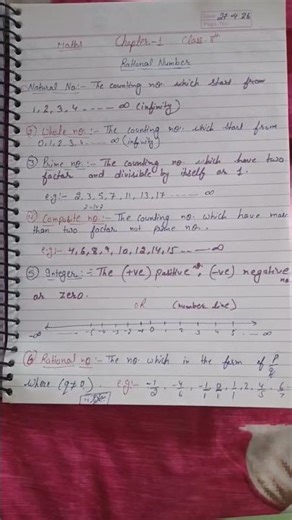 27 4 26
Maths Chapter-1 Class-8th
Rational Number
Natural No:- The counting no. which start from
1, 2, 3, 4 ------ ∞ (infinity)
② Whole no:- The counting no. which start from
0, 1, 2, 3, 4 ---- ∞ (infinity)
③ Prime no:- The counting no. which have two
factor and divisible by itself or 1.
e.g:- 2, 3, 5, 7, 11, 13, 17 ---- ∞
④ Composite no:- The counting no. which have more
than two factor not prime no.
e.g:- 4, 6, 8, 9, 10, 12, 14, 15 ---- ∞
⑤ Integer:- The (+ve) positive, (-ve) negative no
or zero.
OR (number line)
-∞ -5 -4 -3 -2 -1 0 1 2 3 4 5 ∞
⑥ Rational no:- The no which in the form of p/q
where (q≠0). e.g:-